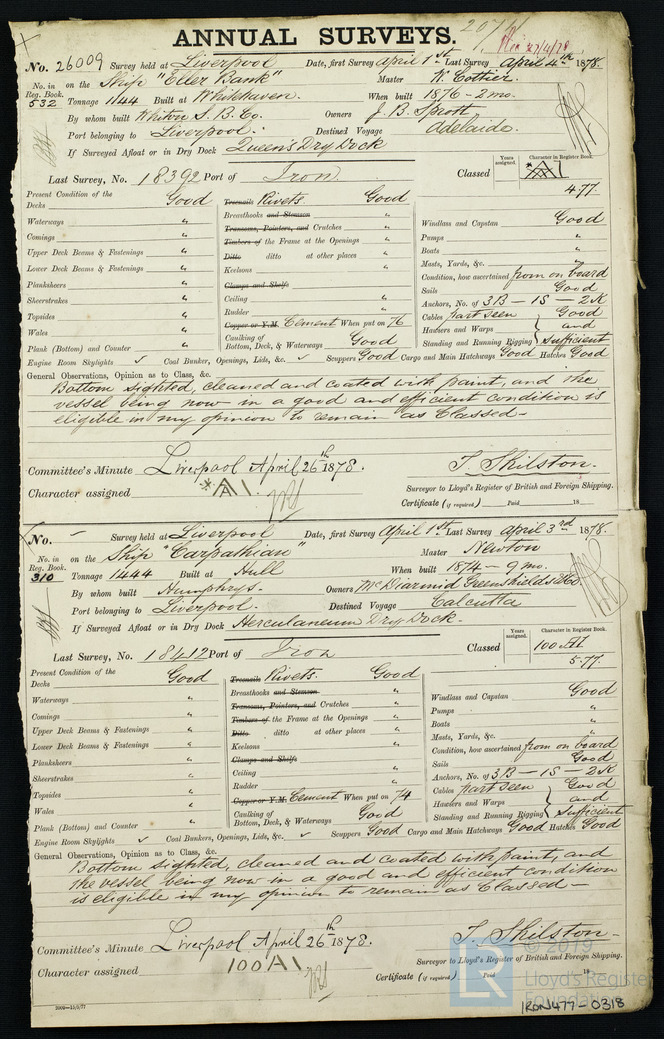 ANNUAL SURVEYS.
No. 26009 Survey held at Liverpool Date, first Survey April 1st Last Survey April 4th 1878.
No. in Reg. Book. 532 on the Ship "Eller Bank" Master W. Cottier
Tonnage 1144 Built at Whitehaven. When built 1876 - 2 mo.
By whom built Whiton S. B. Co. Owners J. B. Sprott
Port belonging to Liverpool. Destined Voyage Adelaide.
If Surveyed Afloat or in Dry Dock Queen's Dry Dock
Years assigned. Character in Register Book.
Last Survey, No. 18392 Port of Iron Classed A1
4.77.
Present Condition of the Decks Good
Waterways "
Comings "
Upper Deck Beams & Fastenings "
Lower Deck Beams & Fastenings "
Planksheers "
Sheerstrakes "
Topsides "
Wales "
Plank (Bottom) and Counter "
Treenails Rivets. Good
Breasthooks and Stemson "
Transoms, Pointers, and Crutches "
Timbers of the Frame at the Openings "
Ditto ditto at other places "
Keelsons "
Clamps and Shelfs
Ceiling "
Rudder "
Copper or Y.M. Cement When put on 76
Caulking of Bottom, Deck, & Waterways Good
Windlass and Capstan Good
Pumps "
Boats "
Masts, Yards, &c. "
Condition, how ascertained from on board
Sails Good
Anchors, No. of 3B - 1S - 2K
Cables part seen Good
Hawsers and Warps and
Standing and Running Rigging sufficient
Engine Room Skylights ✓ Coal Bunker, Openings, Lids, &c. ✓ Scuppers Good Cargo and Main Hatchways Good Hatches Good
General Observations, Opinion as to Class, &c.
Bottom sighted, cleaned and coated with paint, and the
vessel being now in a good and efficient condition is
eligible in my opinion to remain as Classed -
Committee's Minute Liverpool April 26th 1878.
Character assigned A1.
T. Shilston.
Surveyor to Lloyd's Register of British and Foreign Shipping.
Certificate (if required) Paid 18
No. - Survey held at Liverpool Date, first Survey April 1st Last Survey April 3rd 1878.
No. in Reg. Book. 310 on the Ship "Carpathian" Master Newton
Tonnage 1444 Built at Hull When built 1874 - 9 mo.
By whom built Humphrys. Owners McDiarmid Greenshields & Co.
Port belonging to Liverpool. Destined Voyage Calcutta
If Surveyed Afloat or in Dry Dock Herculaneum Dry Dock.
Years assigned. Character in Register Book.
Last Survey, No. 18412 Port of Iron Classed 100 A1
5.77.
Present Condition of the Decks Good
Waterways "
Comings "
Upper Deck Beams & Fastenings "
Lower Deck Beams & Fastenings "
Planksheers "
Sheerstrakes "
Topsides "
Wales "
Plank (Bottom) and Counter "
Treenails Rivets. Good
Breasthooks and Stemson "
Transoms, Pointers, and Crutches "
Timbers of the Frame at the Openings "
Ditto ditto at other places "
Keelsons "
Clamps and Shelfs
Ceiling "
Rudder "
Copper or Y.M. Cement When put on 74
Caulking of Bottom, Deck, & Waterways Good
Windlass and Capstan Good
Pumps "
Boats "
Masts, Yards, &c. "
Condition, how ascertained from on board
Sails Good
Anchors, No. of 3B - 1S - 2K
Cables part seen Good
Hawsers and Warps and
Standing and Running Rigging sufficient
Engine Room Skylights ✓ Coal Bunkers, Openings, Lids, &c. ✓ Scuppers Good Cargo and Main Hatchways Good Hatches Good
General Observations, Opinion as to Class, &c.
Bottom sighted, cleaned and coated with paint, and
the vessel being now in a good and efficient condition
is eligible in my opinion to remain as Classed -
Committee's Minute Liverpool April 26th 1878.
Character assigned 100A1
T. Shilston -
Surveyor to Lloyd's Register of British and Foreign Shipping.
Certificate (if required) Paid 18
LR © 2019
Lloyd's Register
IRON477-0318